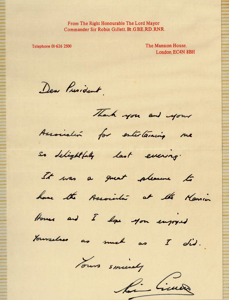 From The Right Honourable The Lord Mayor
Commander Sir Robin Gillett Bt GBE.RD.RNR.
Telephone 01-626 2500 The Mansion House
London EC4N 8BH
Dear President,
Thank you and your
Association for entertaining me
so delightfully last evening.
It was a great pleasure to
have the Association at the Mansion
House and I hope you enjoyed
yourselves as much as I did.
Yours sincerely
Robin Gillett